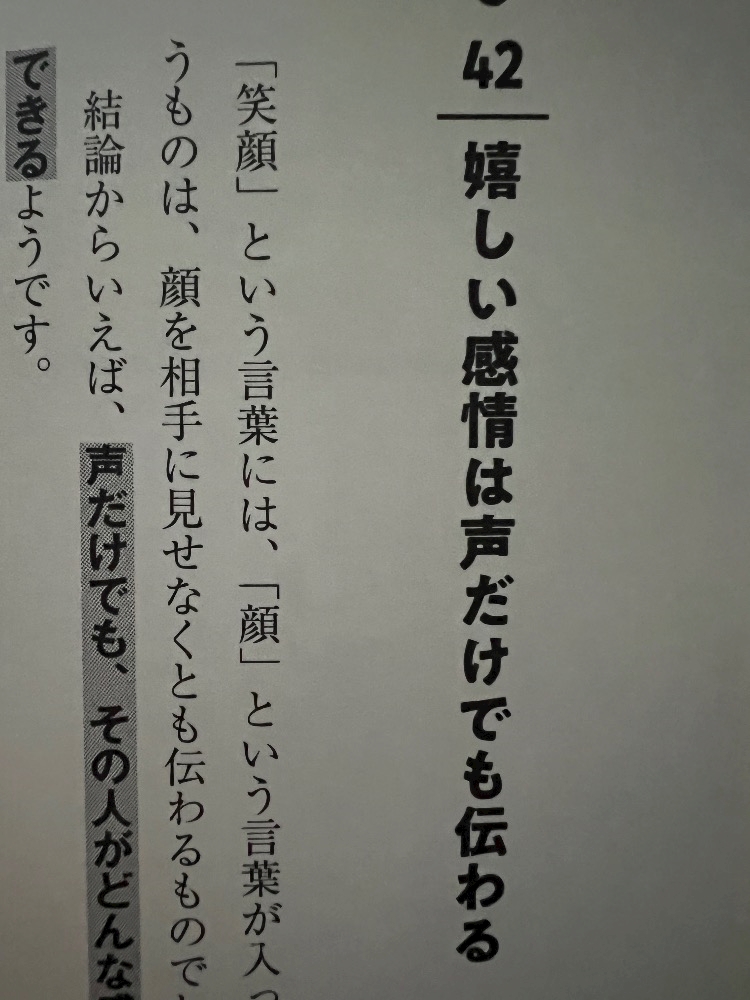 42
嬉しい感情は声だけでも伝わる
「笑顔」という言葉には、「顔」という言葉が入っ
うものは、顔を相手に見せなくとも伝わるもので
結論からいえば、声だけでも、その人がどんな
できるようです。